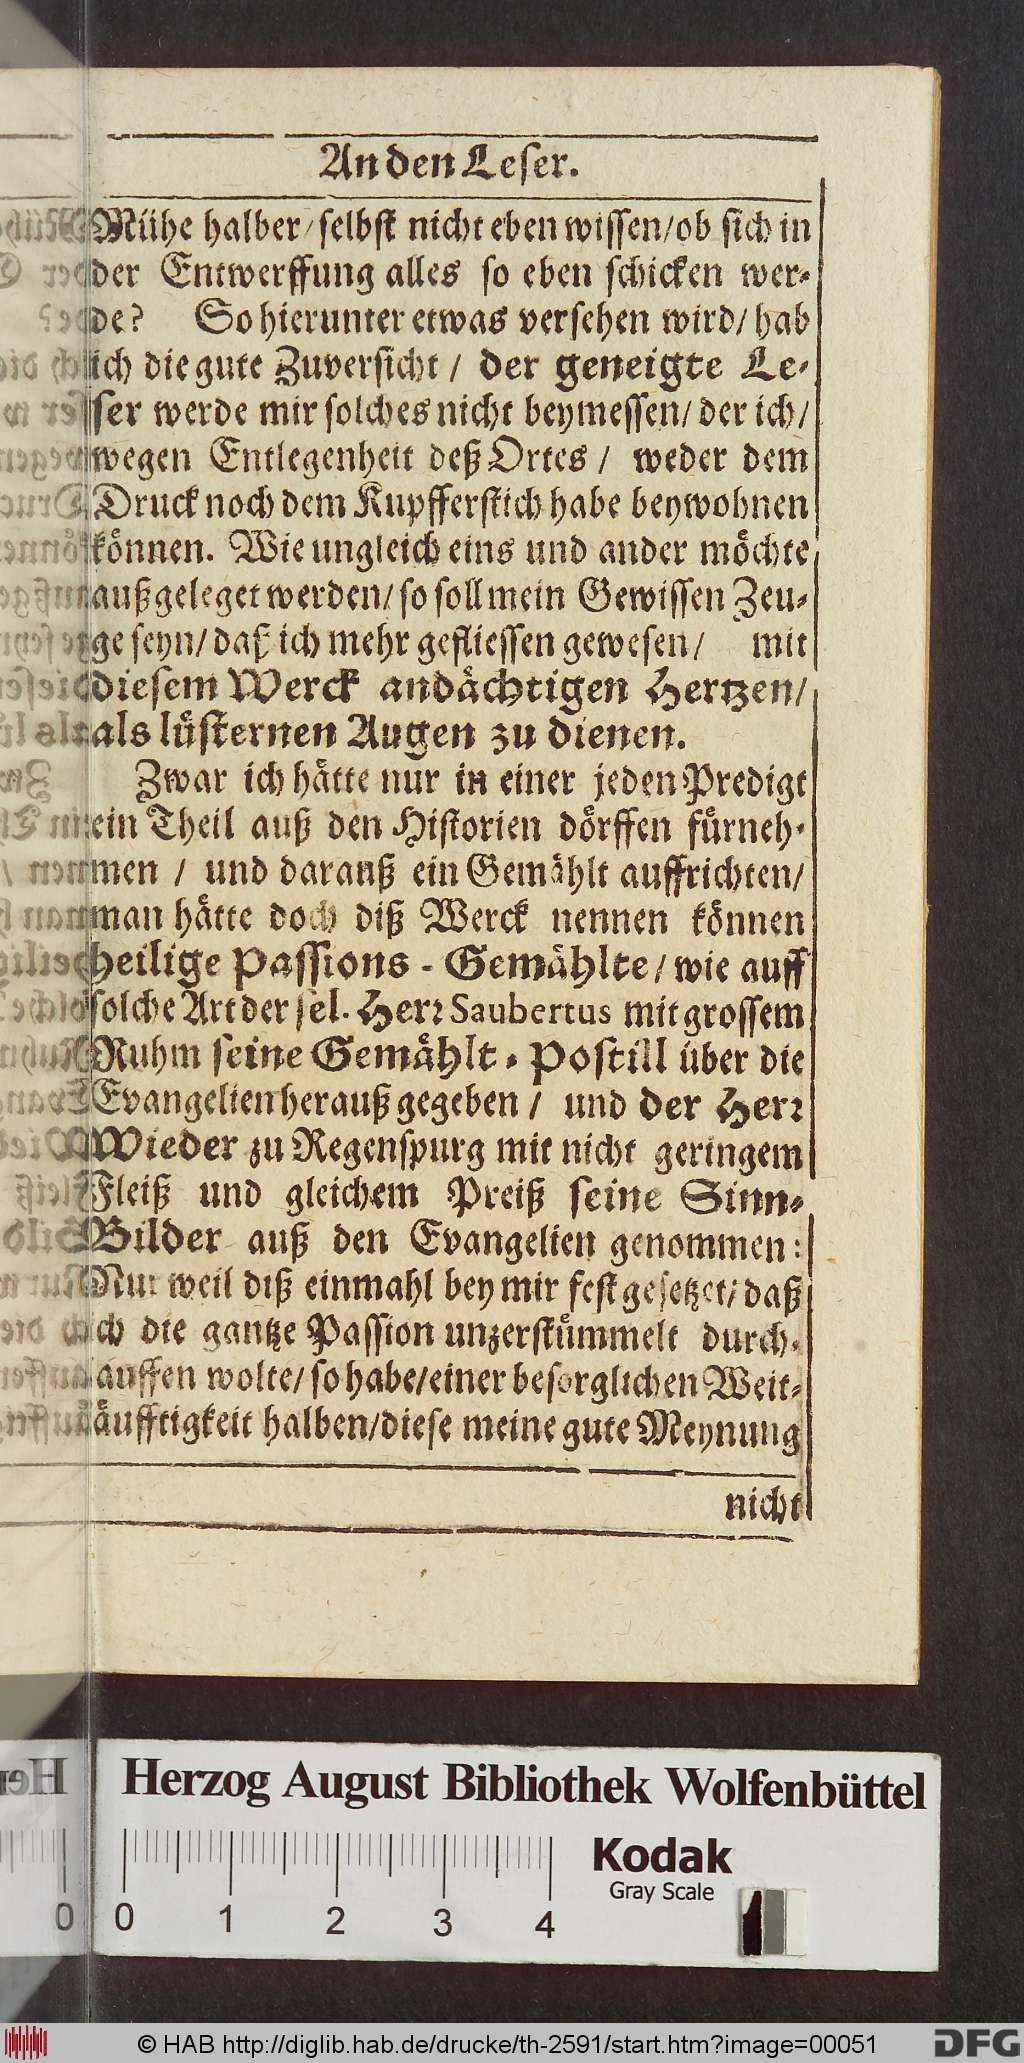 An den Leser.
Mühe halber/ selbst nicht eben wissen/ ob sich in
der Entwerffung alles so eben schicken wer-
de? So hierunter etwas versehen wird/ hab
ich die gute Zuversicht / der geneigte Le-
ser werde mir solches nicht beymessen/ der ich/
wegen Entlegenheit deß Ortes / weder dem
Druck noch dem Kupfferstich habe beywohnen
können. Wie ungleich eins und ander möchte
außgeleget werden/ so soll mein Gewissen Zeu-
ge seyn/ daß ich mehr gefliessen gewesen/ mit
diesem Werck andächtigen Hertzen/
als lüsternen Augen zu dienen.
Zwar ich hätte nur in einer jeden Predigt
ein Theil auß den Historien dörffen fürneh-
men / und darauß ein Gemählt auffrichten/
man hätte doch diß Werck nennen können
heilige Passions-Gemählte/ wie auff
solche Art der sel. Herr Saubertus mit grossem
Ruhm seine Gemählt-Postill über die
Evangelien herauß gegeben / und der Herr
Wieder zu Regenspurg mit nicht geringem
Fleiß und gleichem Preiß seine Sinn-
Bilder auß den Evangelien genommen:
Nur weil diß einmahl bey mir fest gesetzet/ daß
ich die gantze Passion unzerstümmelt durch-
lauffen wolte/ so habe/ einer besorglichen Weit-
läufftigkeit halben/ diese meine gute Meynung
nicht
Herzog August Bibliothek Wolfenbüttel
Kodak
Gray Scale
0 0 1 2 3 4
© HAB http://diglib.hab.de/drucke/th-2591/start.htm?image=00051
DFG